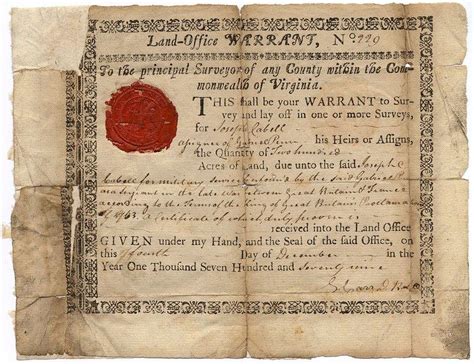 Land-Office WARRANT, No 220
To the principal Surveyor of any County within the Com-
monwealth of Virginia.
THIS shall be your WARRANT to Sur-
vey and lay off in one or more Surveys,
for Joseph Cabell
assignee of Gabriel Penn his Heirs or Assigns,
the Quantity of Two hundred
Acres of Land, due unto the said Joseph
Cabell for military service performed by the said Gabriel
as a Serjeant in the late War between Great Britain & France
according to the Terms of the King of Great Britain's Proclamation
of 1763. A Certificate of which duly proven is
received into the Land Office
GIVEN under my Hand, and the Seal of the said Office, on
this fourth Day of December in the
Year One Thousand Seven Hundred and Seventy nine